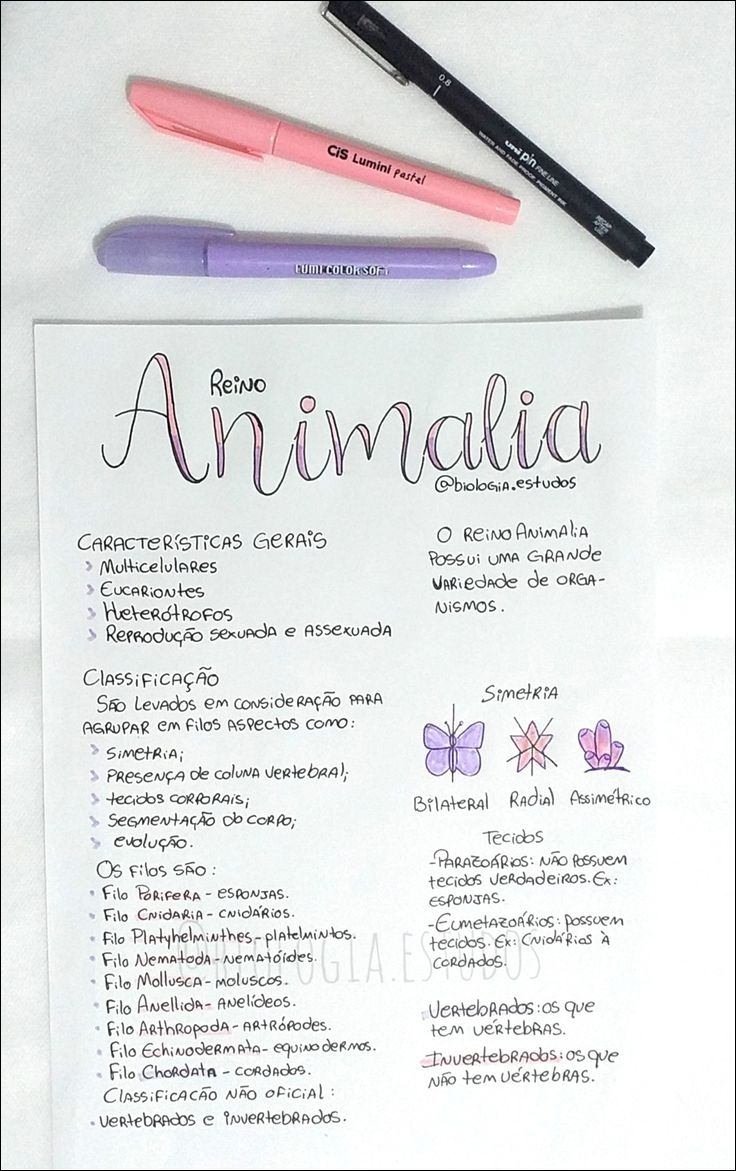 0.8
uni pin FINE LINE
WATER AND FADE PROOF, PIGMENT INK
RECAP
AFTER
USE
CiS Lumini pastel
LUMI COLOR SOFT
Reino
Animalia
@biologia.estudos
Características Gerais
Multicelulares
Eucariontes
Heterótrofos
Reprodução sexuada e assexuada
O Reino Animalia
possui uma grande
variedade de orga-
nismos.
Classificação
São levados em consideração para
agrupar em filos aspectos como:
simetria;
presença de coluna vertebral;
tecidos corporais;
segmentação do corpo;
evolução.
Simetria
Bilateral Radial Assimétrico
Os filos são:
• Filo Porifera - esponjas.
• Filo Cnidaria - cnidários.
• Filo Platyhelminthes - platelmintos.
• Filo Nematoda - nematóides.
• Filo Mollusca - moluscos.
• Filo Anellida - anelídeos.
• Filo Arthropoda - artrópodes.
• Filo Echinodermata - equinodermos.
• Filo Chordata - cordados.
Classificacão não oficial:
• vertebrados e invertebrados.
Tecidos
- Parazoários: não possuem
tecidos verdadeiros. Ex:
esponjas.
- Eumetazoários: possuem
tecidos. Ex: Cnidários à
cordados.
Vertebrados: os que
tem vértebras.
Invertebrados: os que
não tem vértebras.
@BIOLOGIA.ESTUDOS